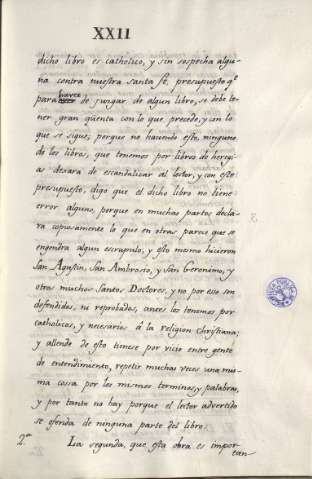 XXII
dicho libro es catholico, y sin sospecha algu-
na contra nuestra santa fé, presupuesto q.e
para haverse de juzgar de algun libro, se debe te-
ner gran qüenta con lo que precede, y con lo
que se sigue; porque no haciendo esto, ninguno
de los libros, que tenemos por libros de heregi-
as dexara de escandalizar al lector, y con este
presupuesto, digo que el dicho libro no tiene
error alguno, porque en muchas partes decla-
ra copiosamente lo que en otras parece que se
engendra algun escrupulo, y esto mismo hicieron
San Agustin, San Ambrosio, y San Geronimo, y
otros muchos Santos Doctores, y no por eso son
defendidos, ni reprobados, antes los tenemos por
catholicos, y necesarios á la religion christiana;
y allende de esto tienese por vicio entre gente
de entendimiento, repetir muchas veces una mis-
ma cosa por los mismos terminos, y palabras,
y por tanto no hay porque el lector advertido
se ofenda de ninguna parte del libro.
2.a La segunda, que esta obra es impor-
tan-